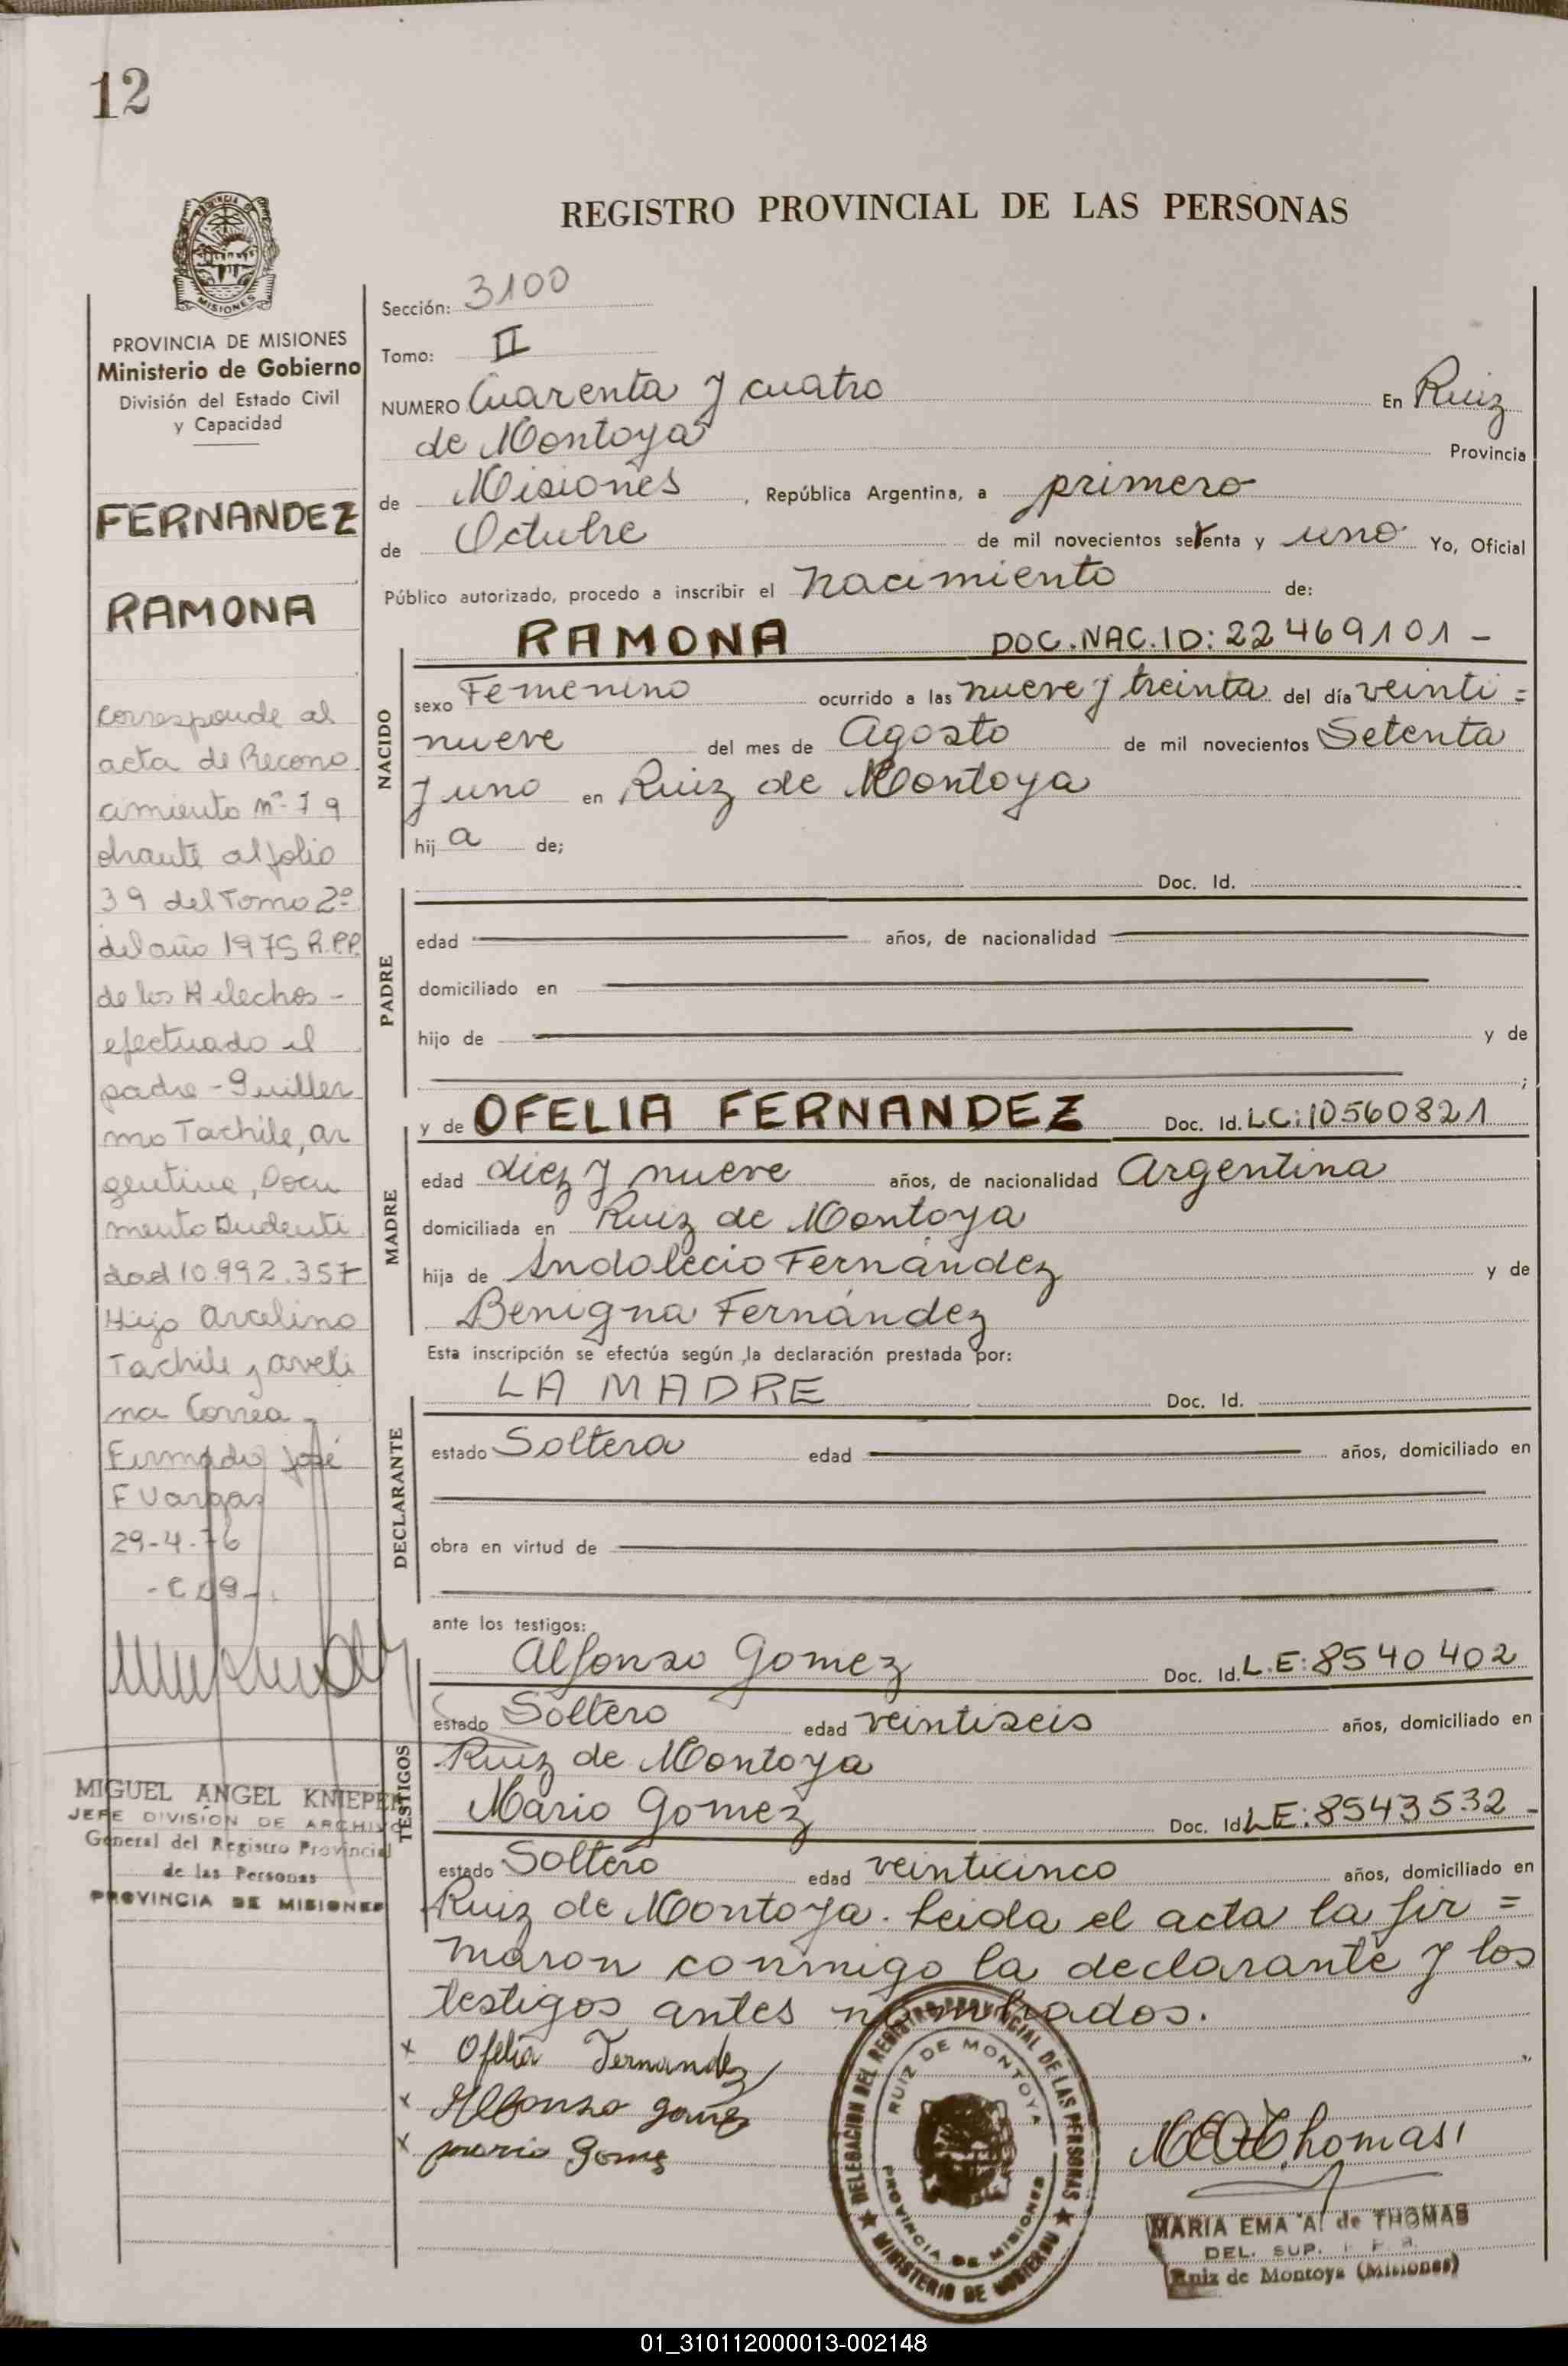 12
REGISTRO PROVINCIAL DE LAS PERSONAS
MISIONES
PROVINCIA DE MISIONES
Ministerio de Gobierno
División del Estado Civil
y Capacidad
FERNANDEZ
RAMONA
corresponde al
acta de Recono
cimiento nº 79
obrante al folio
39 del Tomo 2º
del año 1975 R.P.P.
de los Helechos -
efectuado el
padre - Guiller
mo Tachile, ar
gentino, Docu
mento Identi
dad 10.992.357
Hijo Arcelino
Tachile y aveli
na Correa -
Firmado José
F Vargas
29-4-76
MIGUEL ANGEL KNIEPER
JEFE DIVISIÓN DE ARCHIVO
General del Registro Provincial
de las Personas
PROVINCIA DE MISIONES
Sección: 3100
Tomo: II
NUMERO Cuarenta y cuatro En Ruiz
de Montoya Provincia
de Misiones, República Argentina, a primero
de Octubre de mil novecientos setenta y uno Yo, Oficial
Público autorizado, procedo a inscribir el nacimiento de:
RAMONA DOC.NAC.ID: 22469101 -
NACIDO
sexo Femenino ocurrido a las nueve y treinta del día veinti =
nueve del mes de Agosto de mil novecientos Setenta
y uno en Ruiz de Montoya
hij a de;
PADRE
Doc. Id.
edad años, de nacionalidad
domiciliado en
hijo de y de
;
MADRE
y de OFELIA FERNANDEZ Doc. Id. LC: 10560821
edad diez y nueve años, de nacionalidad Argentina
domiciliada en Ruiz de Montoya
hija de Indolecio Fernández y de
Benigna Fernández
Esta inscripción se efectúa según la declaración prestada por:
DECLARANTE
LA MADRE Doc. Id.
estado Soltera edad años, domiciliado en
obra en virtud de
ante los testigos:
TESTIGOS
Alfonso Gomez Doc. Id. L.E: 8540402
estado Soltero edad veintiseis años, domiciliado en
Ruiz de Montoya
Mario Gomez Doc. Id LE: 8543532 -
estado Soltero edad veinticinco años, domiciliado en
Ruiz de Montoya. Leida el acta la fir =
maron conmigo la declarante y los
testigos antes nombrados.
x Ofelia Fernandez
x Alfonso Gomez
x mario Gomez
DELEGACION DEL REGISTRO PROVINCIAL DE LAS PERSONAS
RUIZ DE MONTOYA
PROVINCIA DE MISIONES
★ MINISTERIO DE GOBIERNO ★
Thomas
MARIA EMA A. de THOMAS
DEL. SUP.
Ruiz de Montoya (Misiones)
01_310112000013-002148